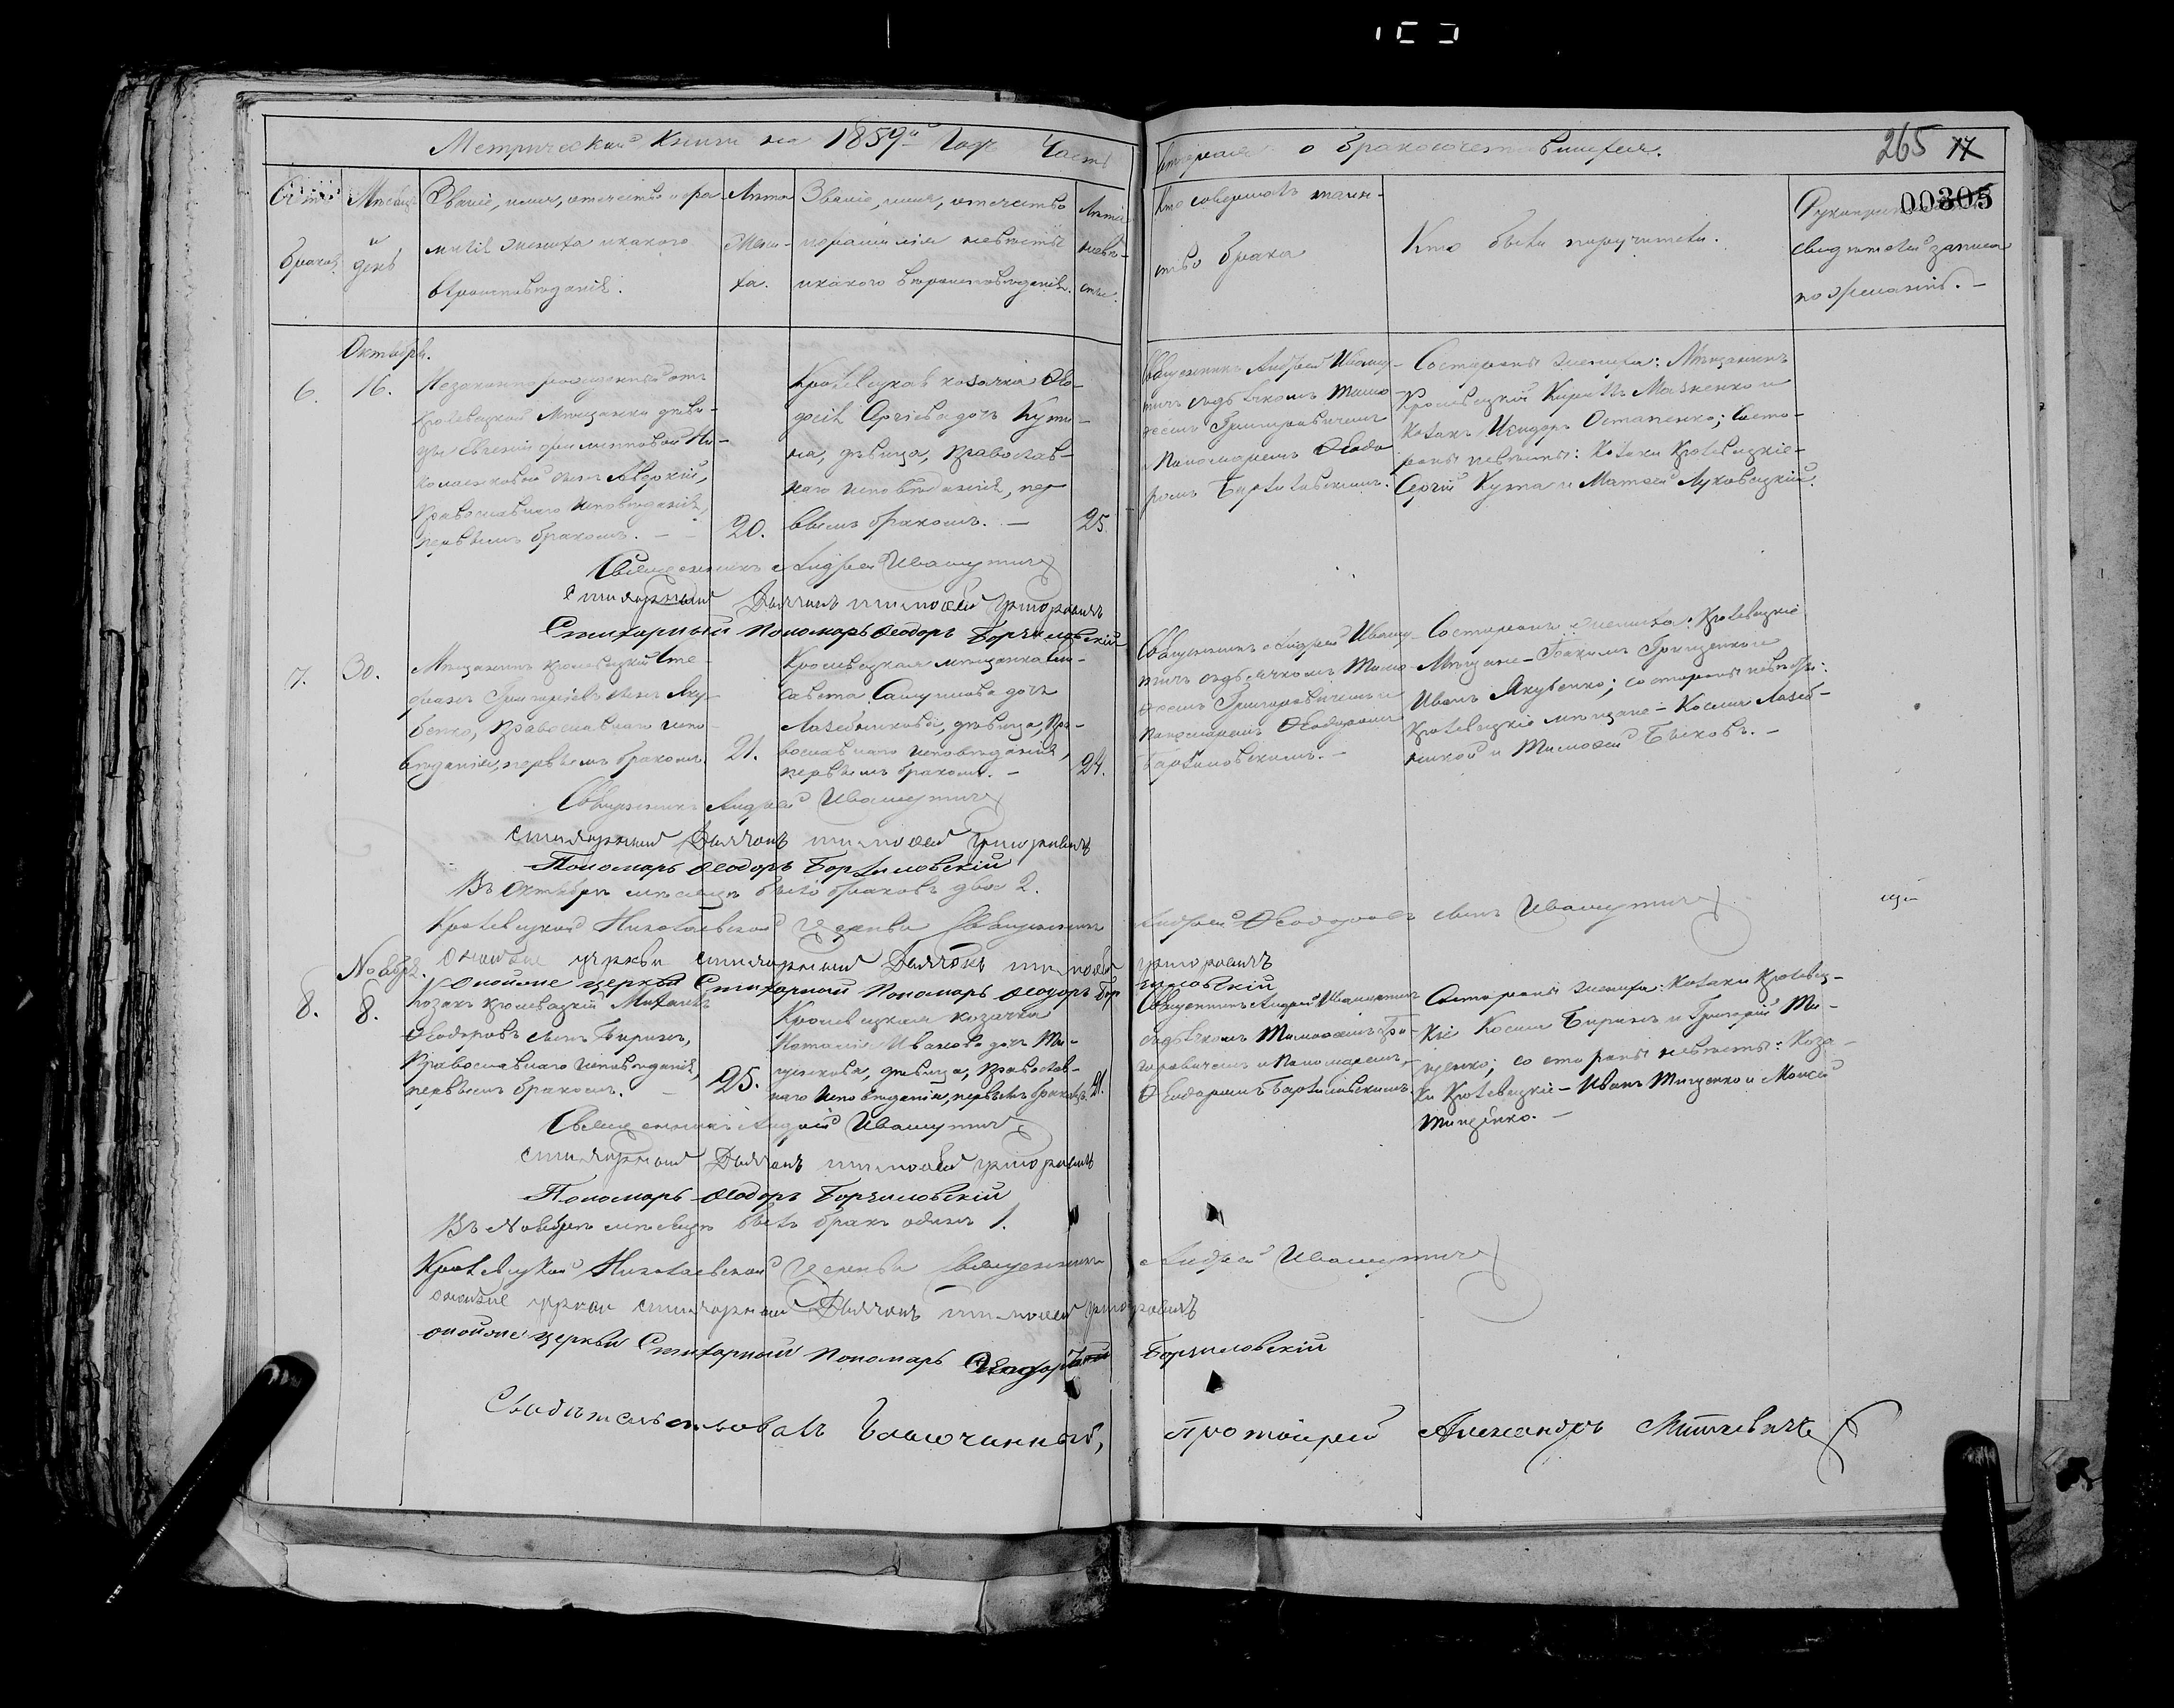 Метрической книги на 1859й Годъ Часть вторая о бракосочетавшихся.
265
00305
Счетъ браковъ.
Мѣсяцъ и день
Званіе, имя, отечество и фамилія жениха и какого вѣроисповѣданія.
Лѣта жениха.
Званіе, имя, отечество и фамилія невѣсты и какого вѣроисповѣданія.
Лѣта невѣсты.
Кто совершалъ таинство брака
Кто были поручители.
свидѣтелей записи по желанію.
Октябрь.
6.
16.
Незаконнорожденный отъ
Кролевецкой Мѣщанки дѣви-
цы Евгеніи Филипповой
сынъ Аверкій,
Православнаго исповѣданія,
первымъ бракомъ.
20.
Кролевецкая козачка Ѳео-
досія Сергіева дочь Кузь-
ма, дѣвица, Православ-
наго исповѣданія, пер-
вымъ бракомъ.
25.
Священникъ Андрей Ивашу-
тичъ съ дьячкомъ Тимо-
ѳеемъ Григоровичемъ
и Пономаремъ Ѳеодо
ромъ Борзиловскимъ.
Со стороны жениха: Мѣщанинъ
Кролевецкій Кириллъ Мазненко и
Козакъ Исидоръ Остапенко; Со сто-
роны невѣсты: Козаки Кролевецкіе
Сергій Кузма и Матѳей Луковецкій.
Священникъ Андрей Ивашутичъ
Стихарный Дьячокъ Тимоѳей Григоровичъ
Стихарный Пономарь Ѳеодоръ Борзиловскій
7.
30.
Мѣщанинъ Кролевецкій Сте-
фанъ Григоріевъ сынъ Яку-
бенко, Православнаго испо
вѣданія, первымъ бракомъ.
21.
Кролевецкая мѣщанка Ели-
савета Самуилова дочь
Лазебникова, дѣвица, Пра-
вославнаго исповѣданія,
первымъ бракомъ.
24.
Священникъ Андрей Ивашу-
тичъ съ дьячкомъ Тимо-
ѳеемъ Григоровичемъ и
Пономаремъ Ѳеодоромъ
Борзиловскимъ.
Со стороны жениха: Кролевецкіе
Мѣщане - Іоакимъ Грищенко и
Иванъ Якубенко; со стороны невѣсты:
Кролевецкіе мѣщане - Косма Лазеб-
никовъ и Тимоѳей Быковъ.
Священникъ Андрей Ивашутичъ
Стихарный Дьячокъ Тимоѳей Григоровичъ
Пономарь Ѳеодоръ Борзиловскій
Въ Октябрѣ мѣсяцѣ было браковъ два 2.
Кролевецкой Николаевской Церкви Священникъ Андрей Ѳеодоровъ сынъ Ивашутичъ
Оной же церкви стихарный Дьячокъ Тимоѳей Григоровичъ
Оной же церкви Стихарный Пономарь Ѳеодоръ Борзиловскій
Ноябрь.
8.
8.
Козакъ Кролевецкій Михаилъ
Ѳеодоровъ сынъ Биринъ,
Православнаго исповѣданія,
первымъ бракомъ.
25.
Кролевецкая козачка
Наталія Иванова дочь Ти-
щенкова, дѣвица, Православ-
наго исповѣданія, первымъ бракомъ.
21.
Священникъ Андрей Ивашутичъ
съ дьячкомъ Тимоѳеемъ Гри-
горовичемъ и Пономаремъ
Ѳеодоромъ Борзиловскимъ.
Со стороны жениха: Козаки Кролевец-
кіе Косма Биринъ и Григорій Ти-
щенко; со стороны невѣсты: Коза-
ки Кролевецкіе - Иванъ Тищенко и Моисей
Тищенко.
Священникъ Андрей Ивашутичъ
Стихарный Дьячокъ Тимоѳей Григоровичъ
Пономарь Ѳеодоръ Борзиловскій
Въ Ноябрѣ мѣсяцѣ былъ бракъ одинъ 1.
Кролевецкой Николаевской Церкви Священникъ Андрей Ивашутичъ
Оной же церкви стихарный Дьячокъ Тимоѳей Григоровичъ
Оной же церкви Стихарный Пономарь Ѳеодоръ Борзиловскій
Свидѣтельствовалъ Благочинный, Протоіерей Александръ